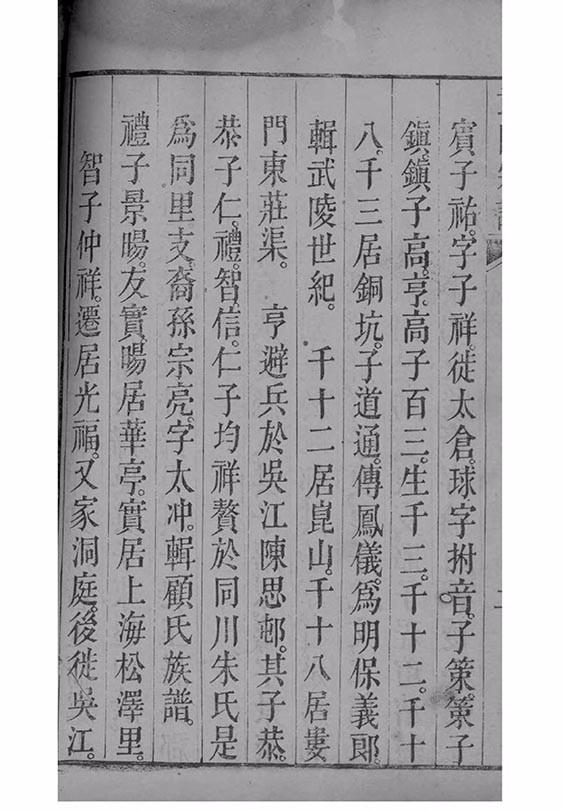 賓子祐。字子祥。徙太倉。球字拊音。子策。策子
鎮。鎮子高。亨。高子百三。生千三。千十二。千十
八。千三居銅坑。子道通。傳鳳儀。爲明保義郎。
輯武陵世紀。 千十二居崑山。千十八居婁
門東莊渠。 亨避兵於吳江陳思邨。其子恭。
恭子仁。禮。智。信。仁子均祥贅於同川朱氏是
爲同里支。裔孫宗亮。字太冲。輯顧氏族譜。
禮子景暘。友實。暘居華亭。實居上海松澤里。
智子仲祥。遷居光福。又家洞庭。後徙吳江。